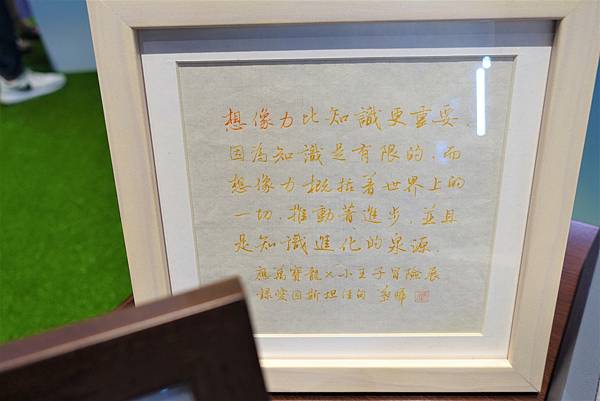 想像力比知識更重要.
因為知識是有限的.而
想像力概括著世界上的
一切.推動著進步.並且
是知識進化的泉源.
應萬寶龍×小王子冒險展
錄愛因斯坦佳句